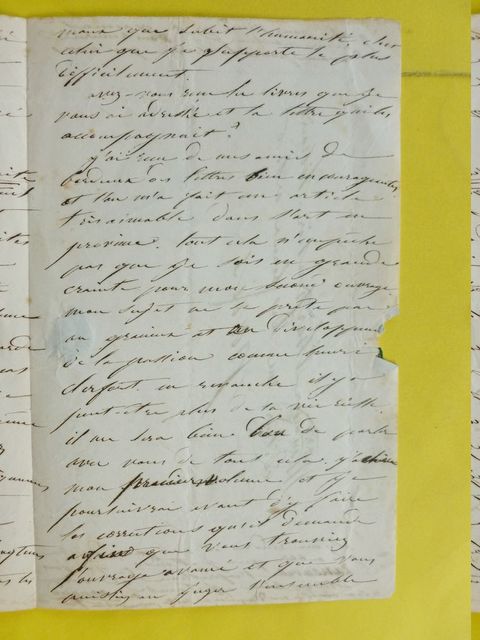 maux que subit l'humanité, c'est
celui que je supporte le plus
difficilement.
avez-vous reçu les livres que je
vous ai adressé et la lettre qui les
accompagnait?
j'ai reçu de mes amis de
bordeaux des lettres bien encourageantes
et l'on m'a fait un article
très aimable dans l'art en
province. tout cela n'empêche
pas que je sois en grande
crainte pour mon second ouvrage
mon sujet ne se prête pas
au gracieux et au développement
de la passion comme
en revanche il y a
peut-être plus de la vie réelle.
il me sera bien bon de parler
avec vous de tout cela. j'achève
mon premier volume et je
poursuivrai avant d'y faire
les corrections qu'il demande
afin que vous trouviez
l'ouvrage avancé et que vous
puissiez en juger l'ensemble